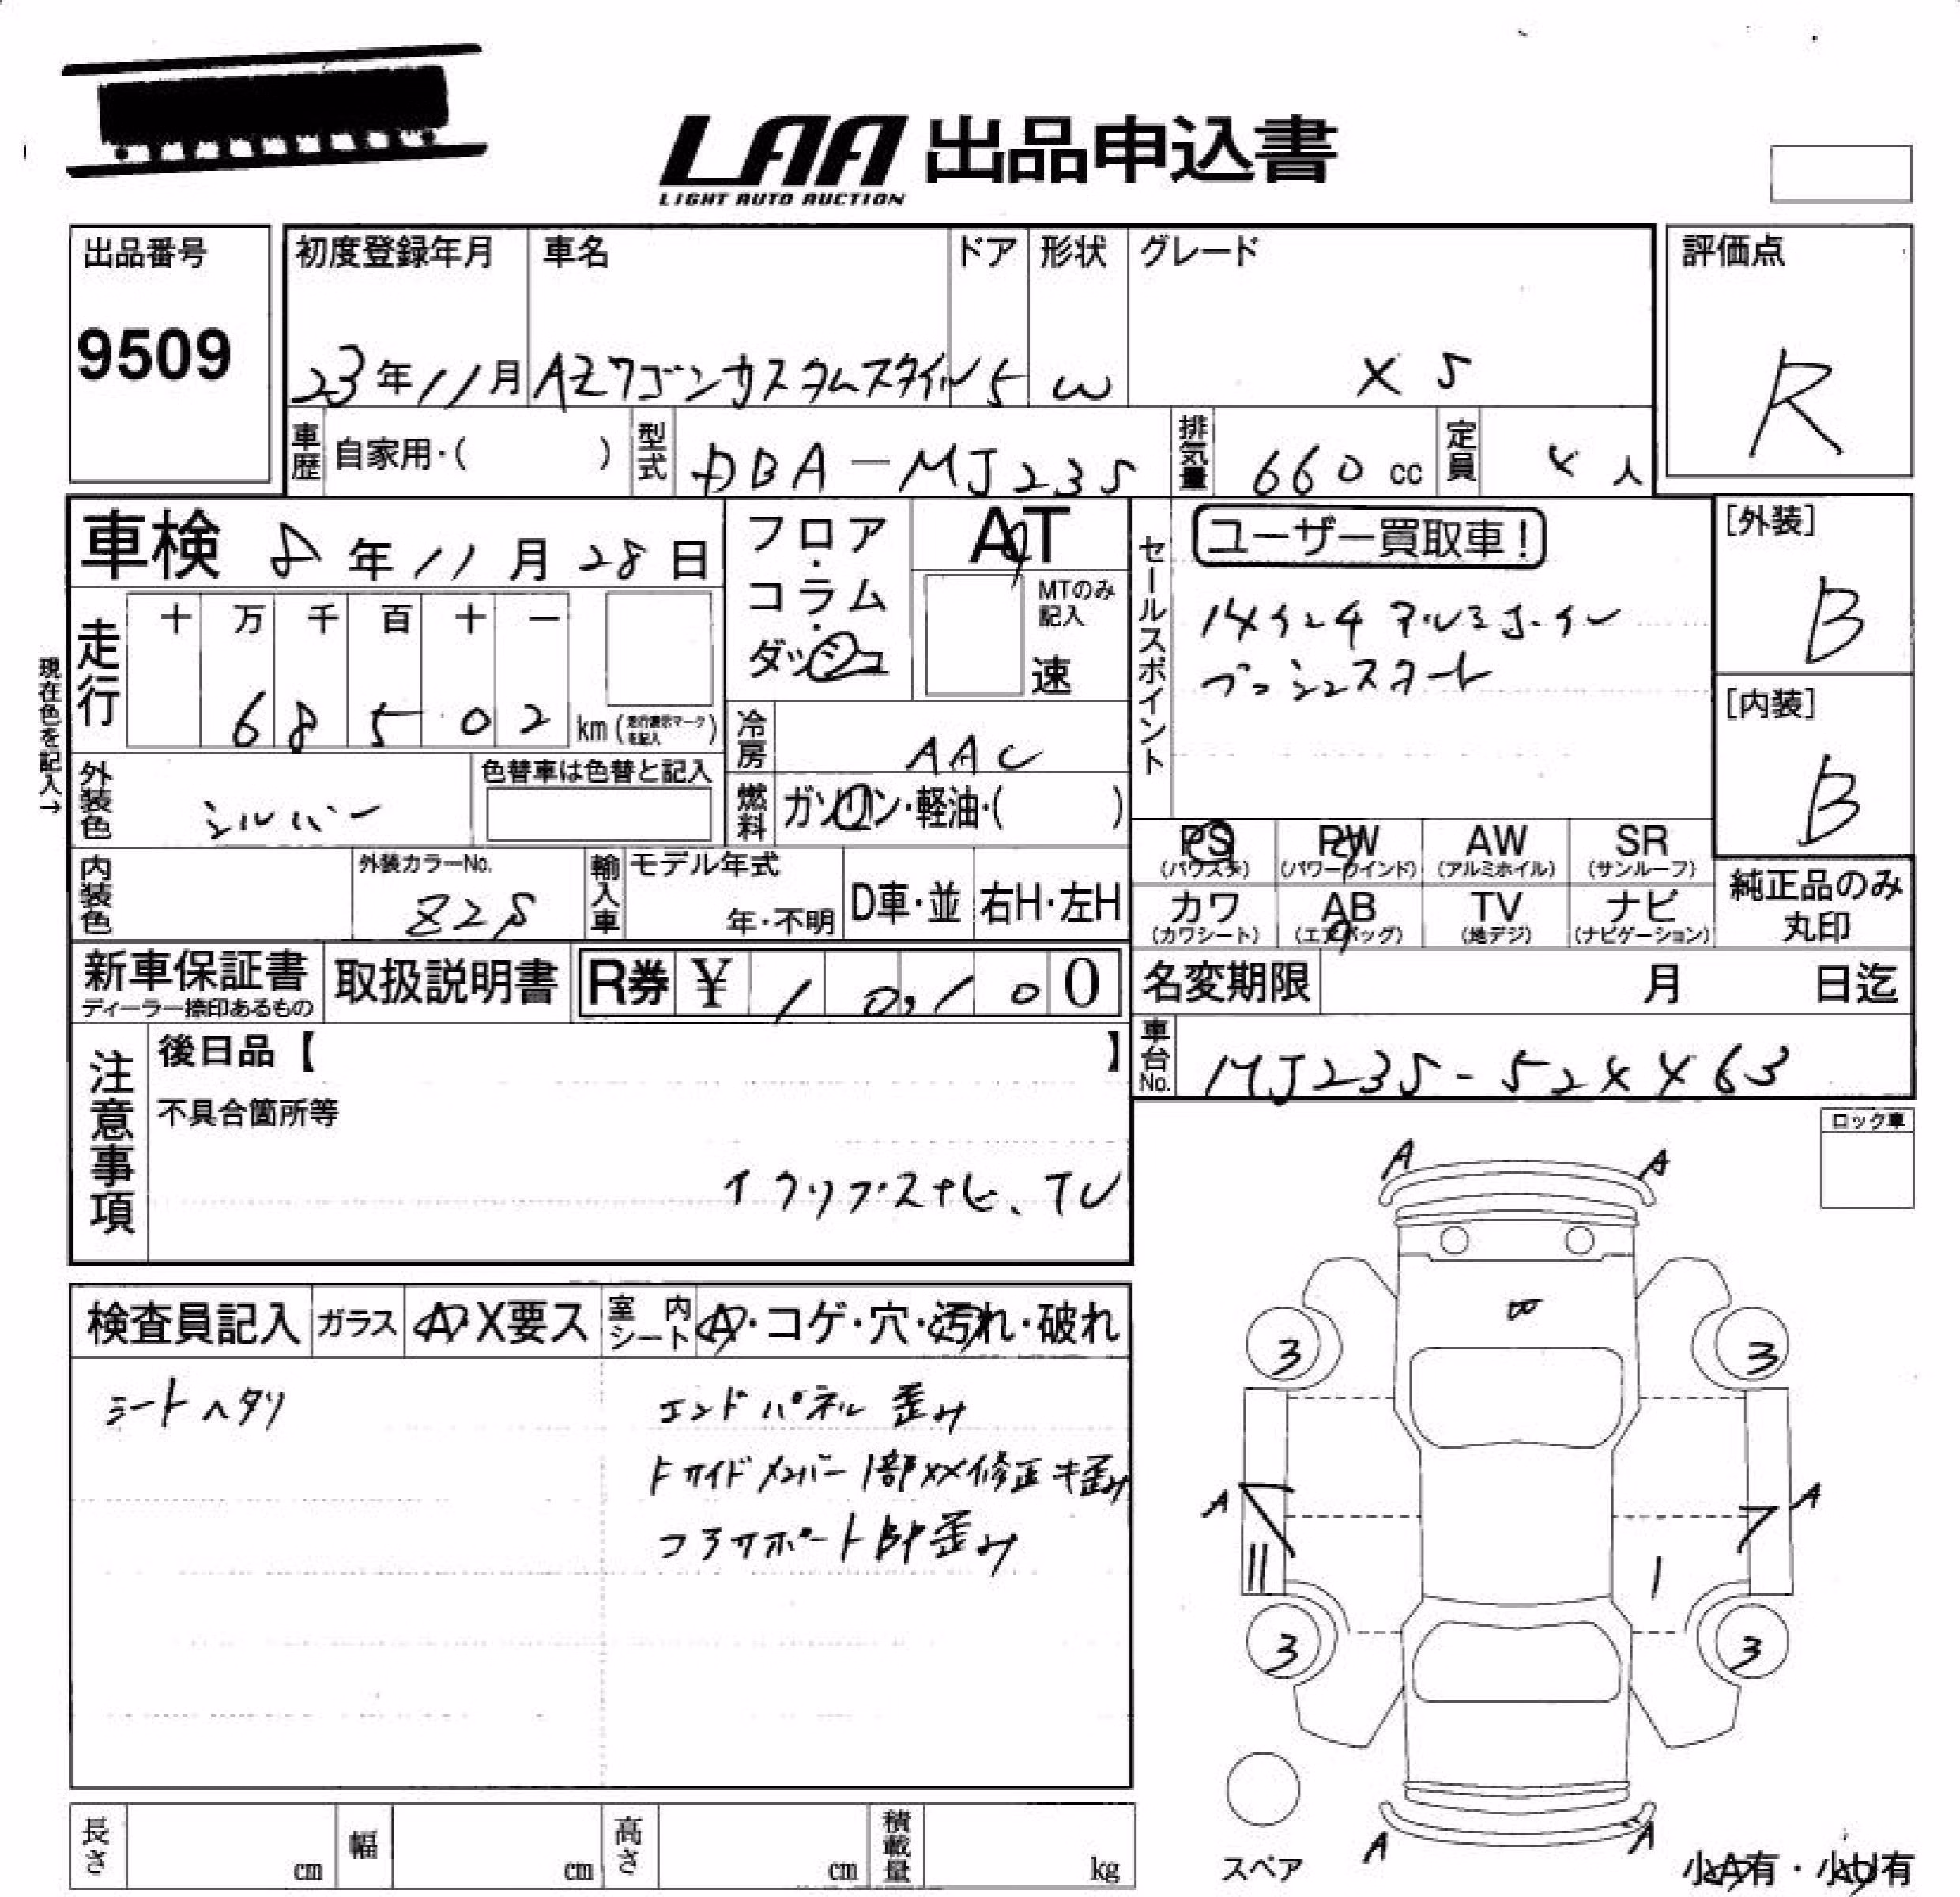 LAA 出品申込書
LIGHT AUTO AUCTION
出品番号
9509
初度登録年月 車名 ドア 形状 グレード
23年11月 AZワゴンカスタムスタイル 5 W XS
評価点
R
車歴 自家用・( ) 型式 DBA-MJ23S 排気量 660cc 定員 4人
車検 8年11月28日
フロア・コラム・ダッシュ
AT
MTのみ記入
速
セールスポイント
ユーザー買取車!
14インチアルミホイル
プッシュスタート
[外装]
B
[内装]
B
現在色を記入→
走行 十 万 千 百 十 一
6 8 5 0 2 km (走行表示マークを記入)
冷房 AAC
外装色 シルバー
色替車は色替と記入
燃料 ガソリン・軽油・( )
PS AW SR
PW
(パワステ) (パワーウインド) (アルミホイル) (サンルーフ)
カワ AB TV ナビ
(カワシート) (エアバッグ) (地デジ) (ナビゲーション)
純正品のみ
丸印
内装色
外装カラーNo.
Z2S
輸入車 モデル年式
年・不明
D車・並 右H・左H
新車保証書
ディーラー捺印あるもの
取扱説明書
R券 ¥ 10,100
名変期限 月 日迄
車台No. MJ23S-524463
注意事項
後日品【 】
不具合箇所等
イクリプスナビ、TV
ロック車
検査員記入 ガラス A・X要ス 室内シート A・コゲ・穴・汚れ・破れ
シートヘタリ
エンドパネル 歪み
トサイドメンバー 1部XX修正キ歪み
コアサポートBP歪み
A A
B
3 3
A A
1
3 3
A A
スペア
小A有・小U有
長さ cm 幅 cm 高さ cm 積載量 kg